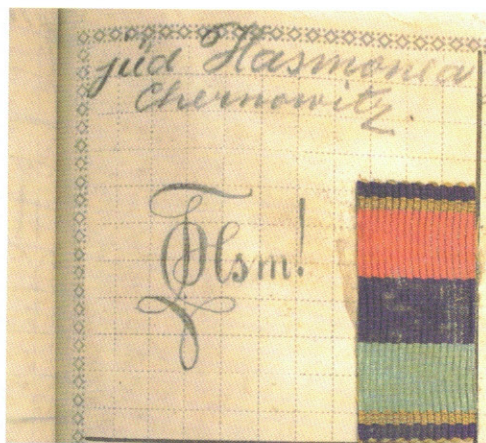 jüd Hasmonea
Chernowitz.
Hsm!